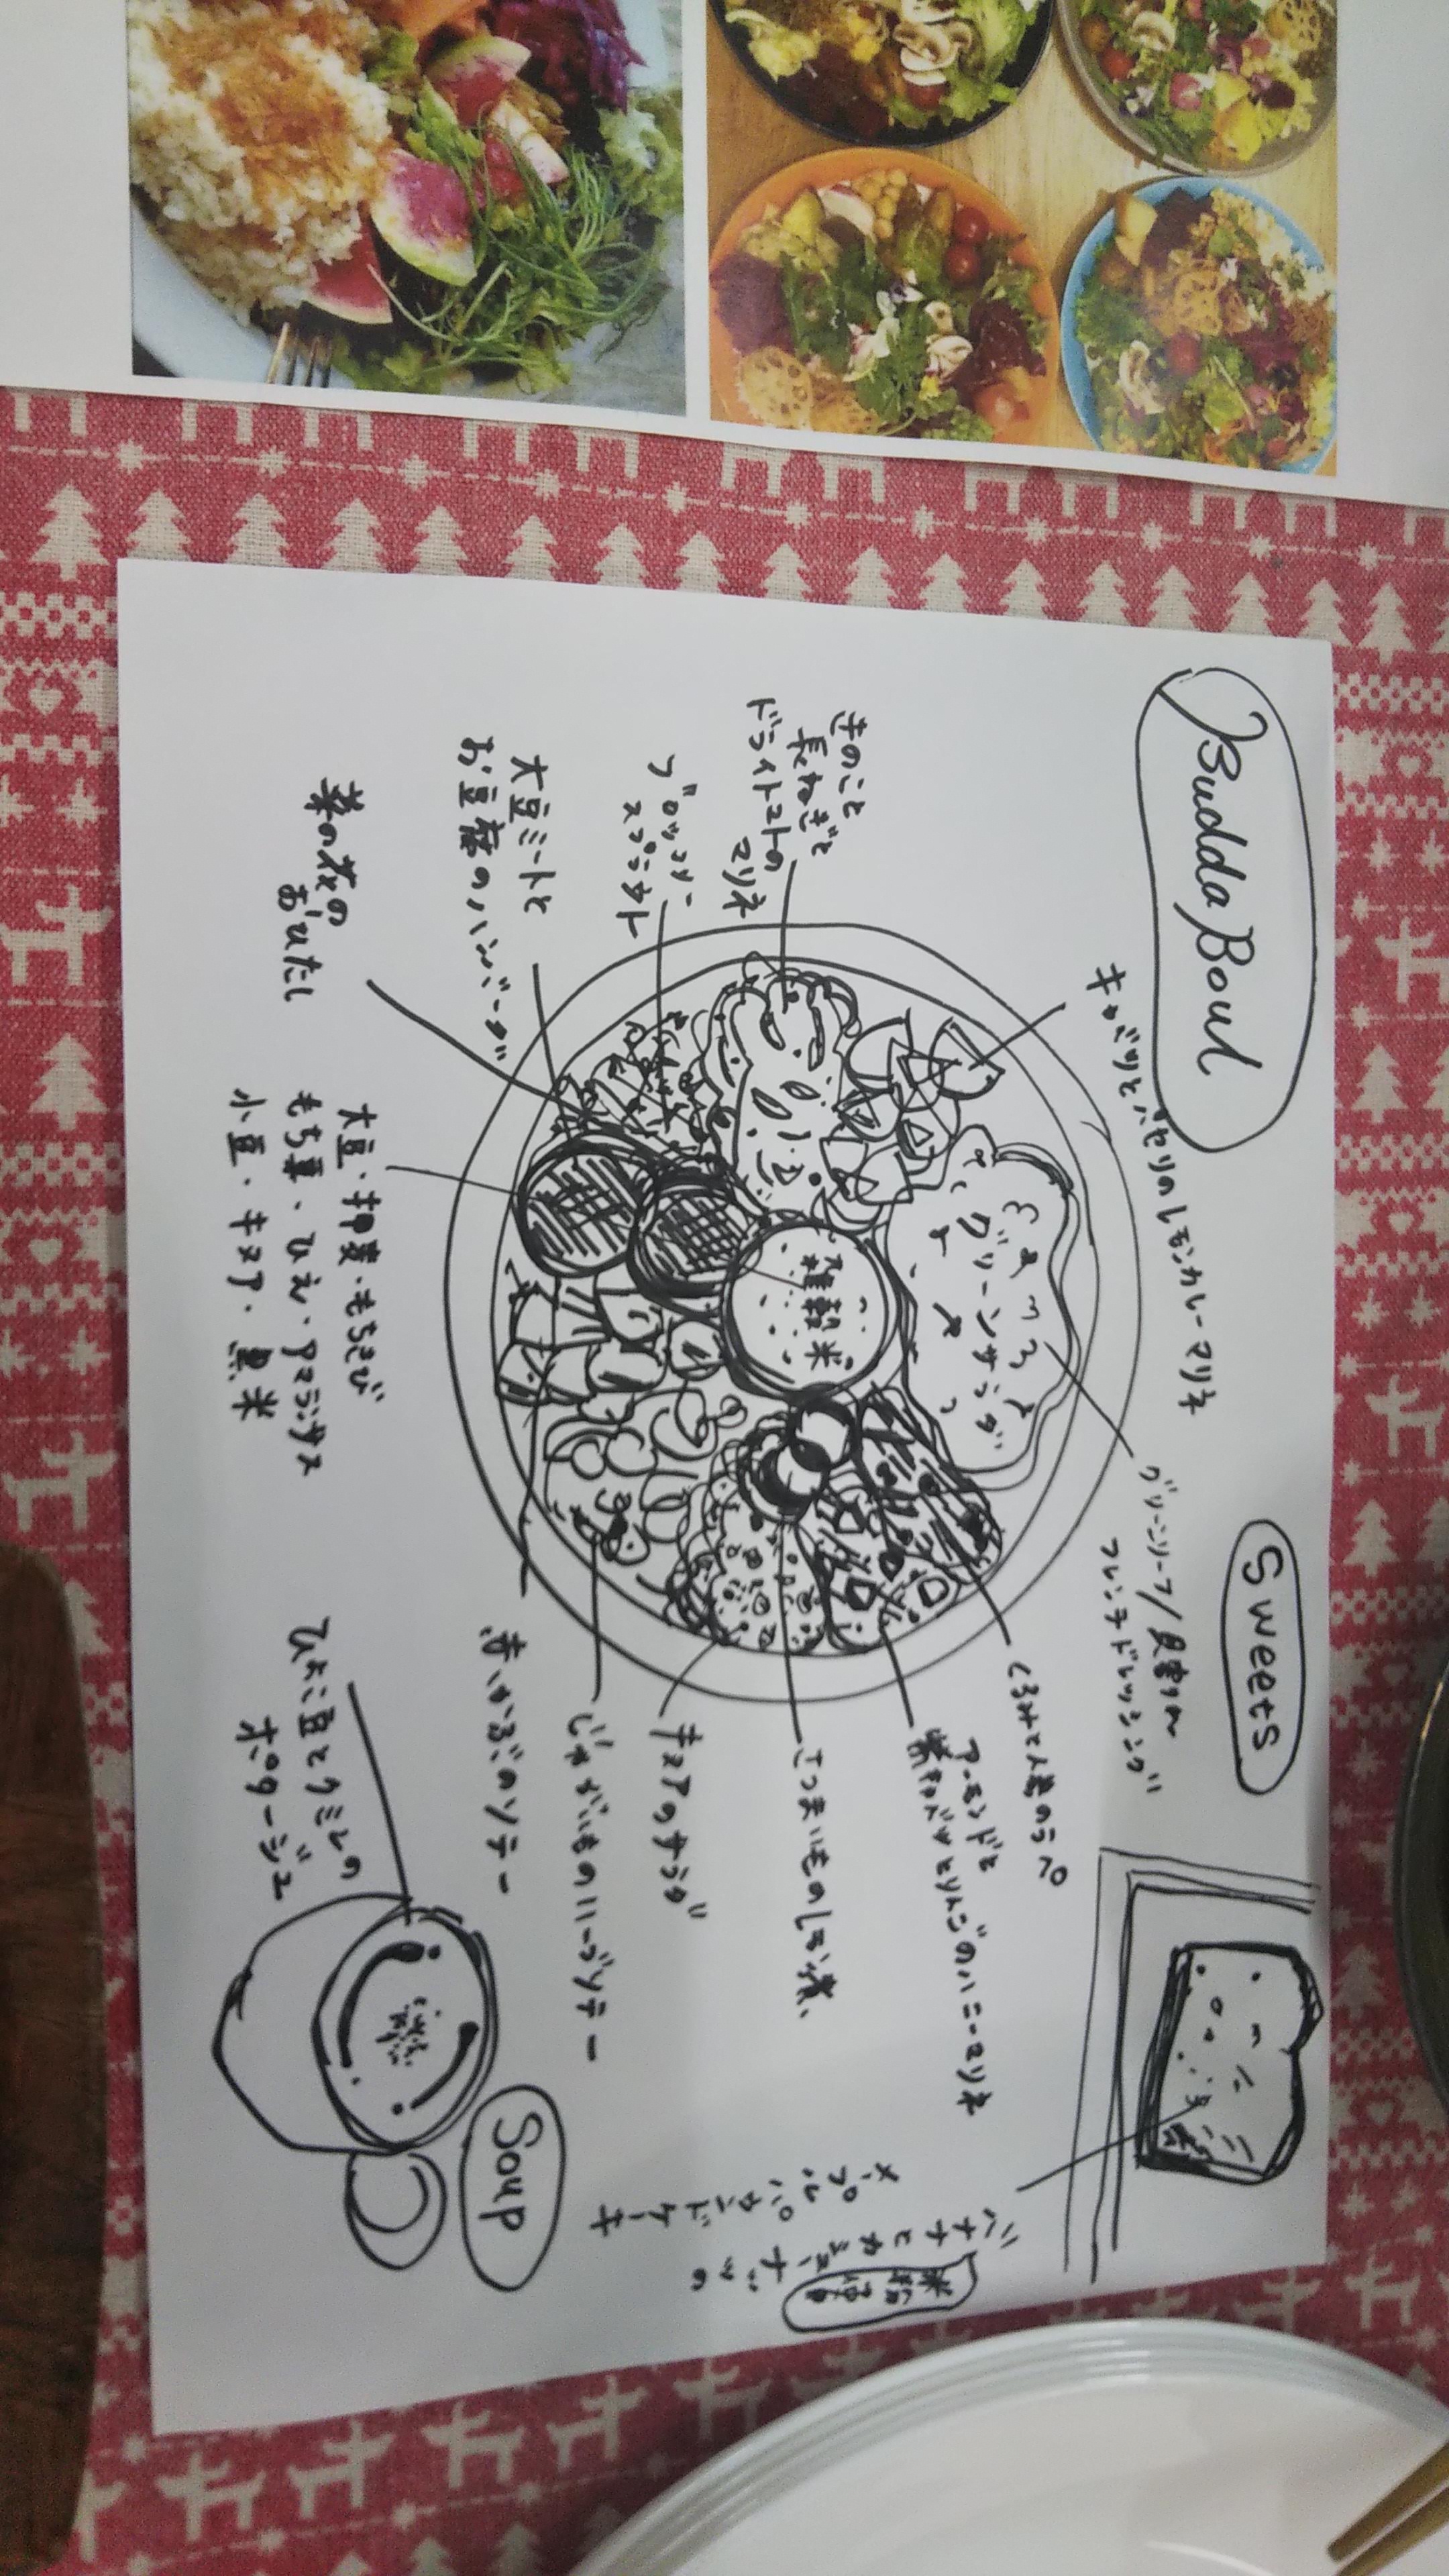 Budda Bowl
キャベツとパセリのレモンカレーマリネ
きのこと
長ねぎと
ドライトマトの
マリネ
ブロッコリー
スプラウト
大豆ミートと
お豆腐のハンバーグ
菜の花の
おひたし
大豆・押麦・もちきび
もち粟・ひえ・アマランサス
小豆・キヌア・黒米
グリーンサラダ
雑穀米
Sweets
グリーンリーフ/
フレンチドレッシング
くるみと人参のラペ
アーモンドと
紫キャベツとりんごのハニーマリネ
さつまいものレモン煮
キヌアのサラダ
じゃがいものハーブソテー
赤かぶのソテー
ひよこ豆とクミンの
ポタージュ
Soup
米粉使用
バナナとカシューナッツの
メープルパウンドケーキ